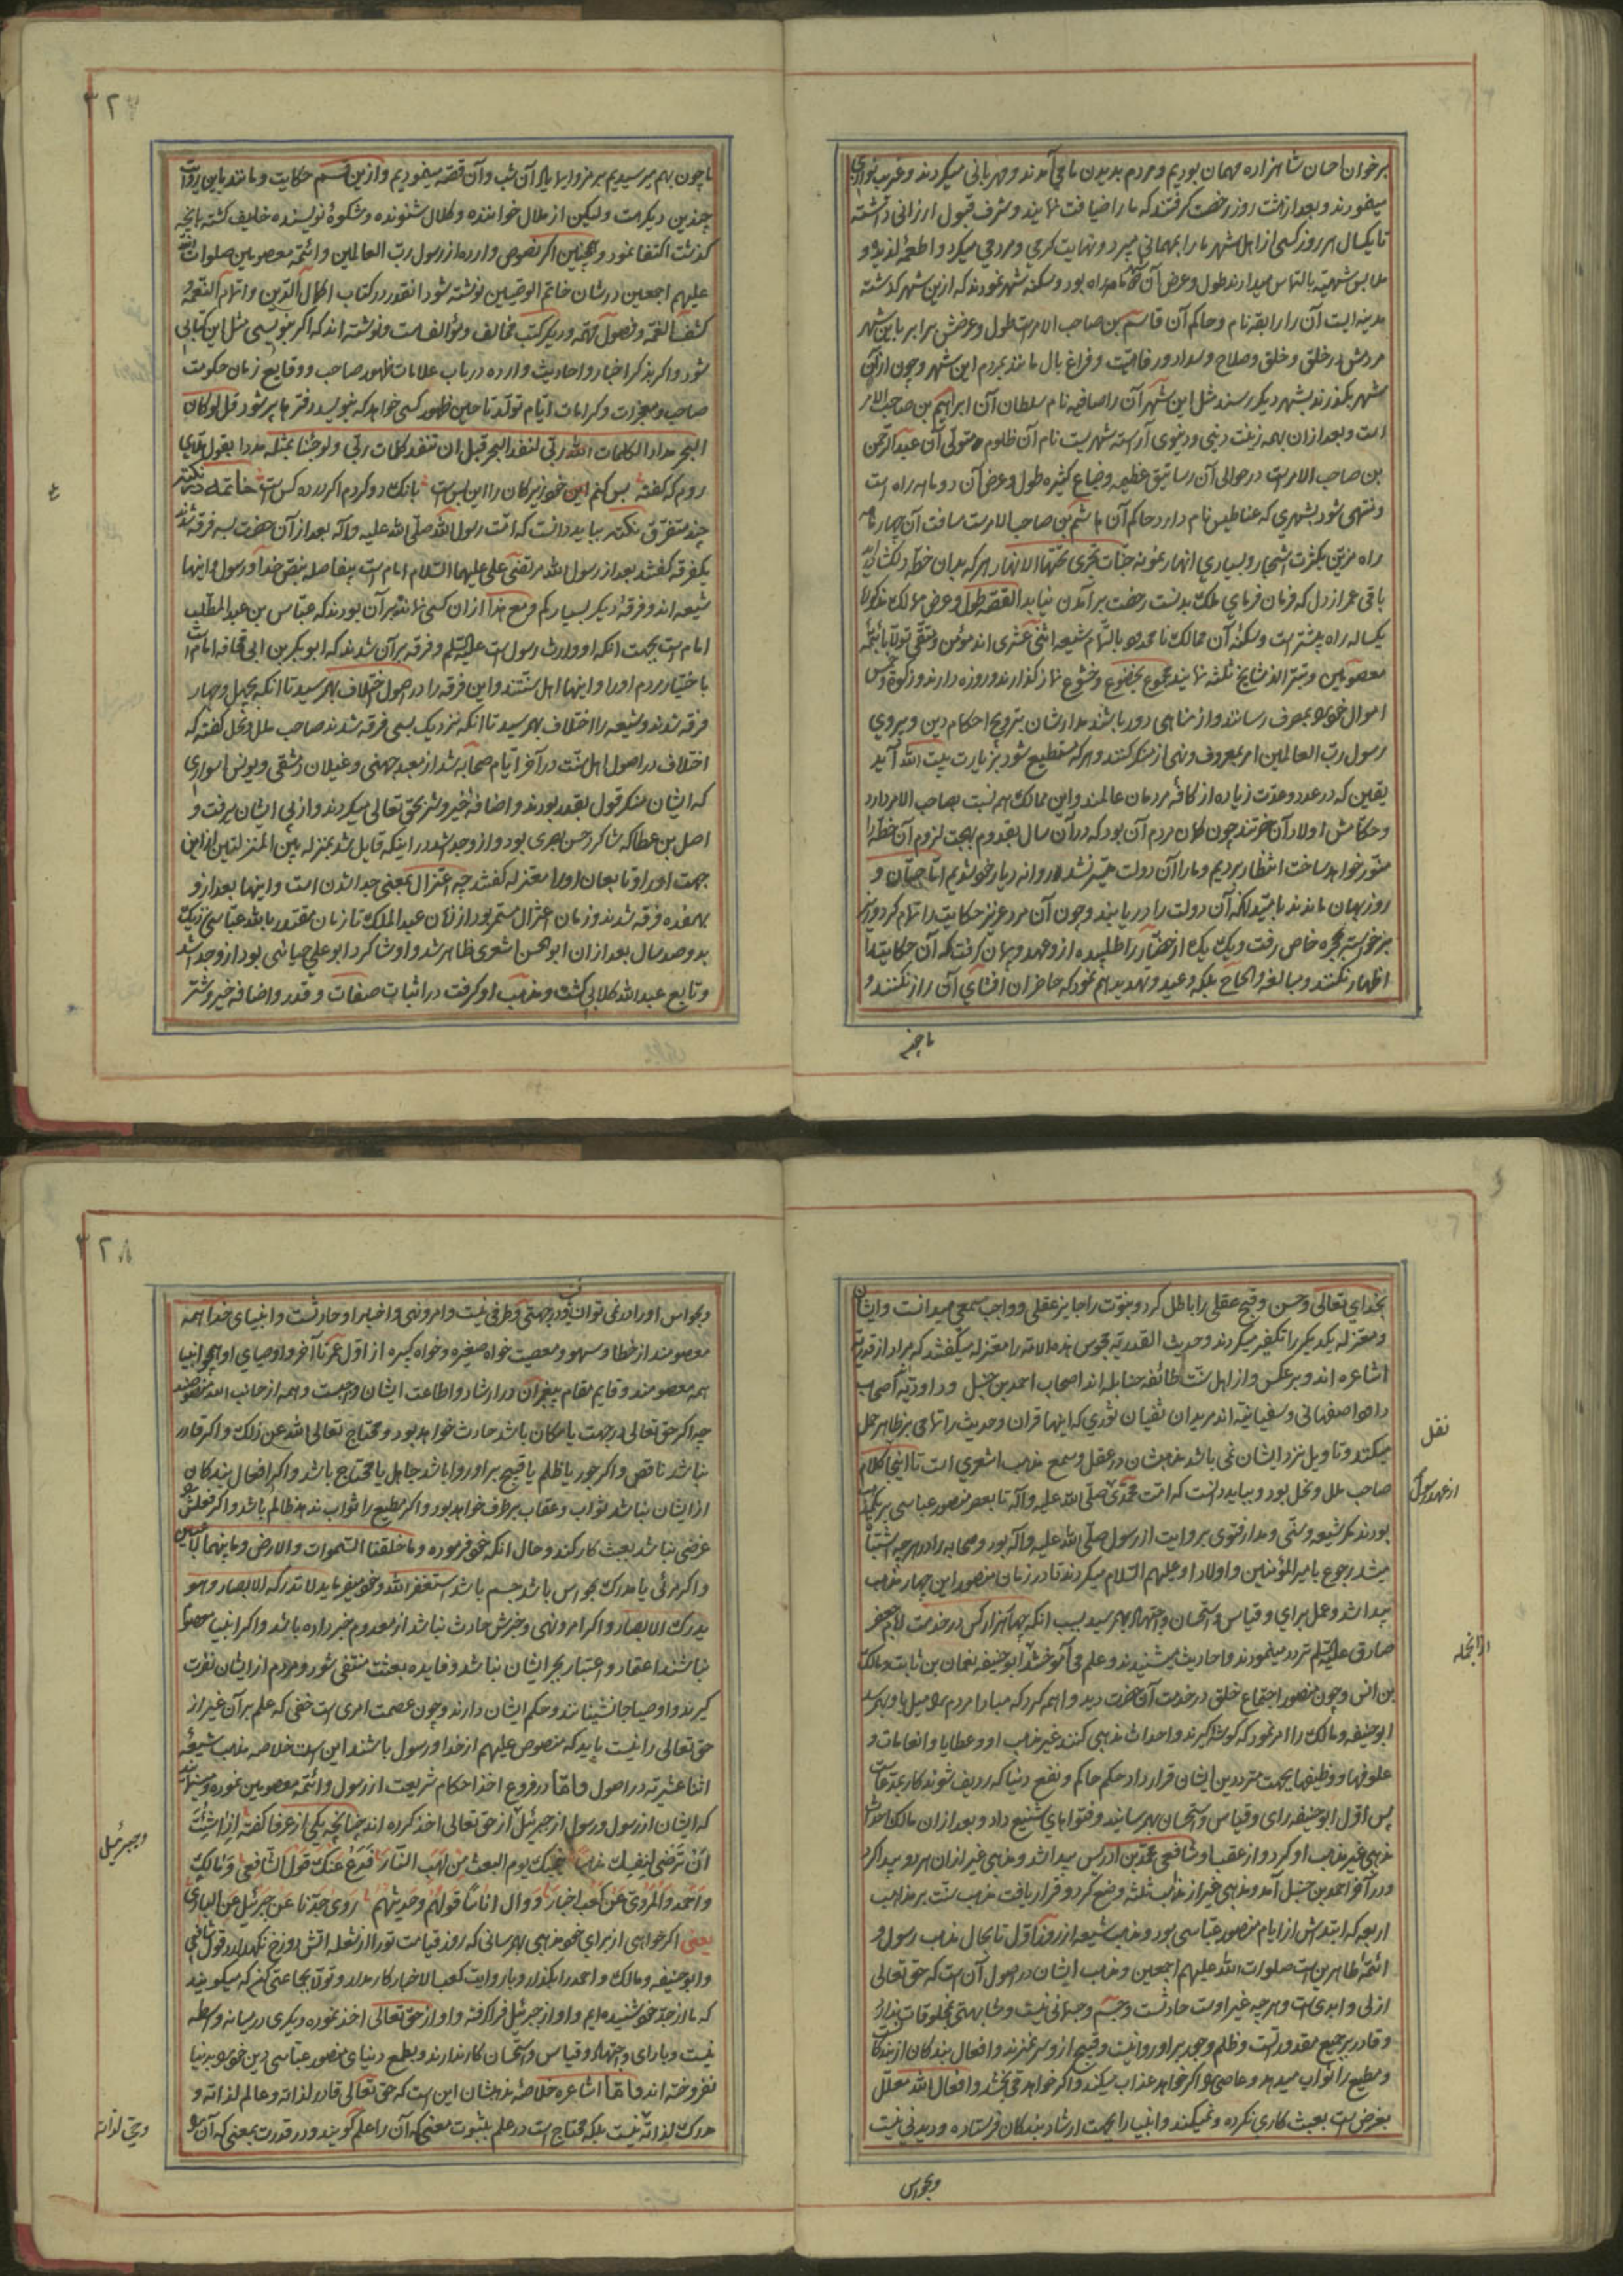 بر خوان احسان شاهزاده مهمان بودیم و مردم بدیدن ما می آمدند و مهربانی میکردند و غریب نوازی
مینمودند و بعد از هشت روز رخصت گرفتند که ما را ضیافت نمایند و شرف قبول ارزانی داشته
تا یکسال هر روز کسی از اهل شهر ما را بمهمانی میبرد و نهایت کرمی و مردمی میکرد و اطعمهٔ لذیذه و
ملابس شهیه بالتماس میدادند طول و عرض آن شهر دو ماهه راه بود و سکنه شهر نمودند که ازین شهر گذشته
مدینه ایست آن را رایقه نام و حاکم آن قاسم بن صاحب الامر است طول و عرضش برابر باین شهر
مردمش در خلق و خلق و صلاح و سداد و رفاهیت و فراغ بال مانند مردم این شهر و چون از آن
شهر بگذرند بشهر دیگر رسند مثل این شهر آن را صافیه نام سلطان آن ابراهیم بن صاحب الامر
است و بعد از آن بهمه زینت دینی و دنیوی آراسته شهریست نام آن ظلوم متولی آن عبدالرحمن
بن صاحب الامر است در حوالی آن رساتیق عظیمه و ضیاع کثیره طول و عرض آن دو ماهه راه است
و منتهی شود بشهری که عناطیس نام دارد حاکم آن هاشم بن صاحب الامر است مسافت آن چهار ماهه
راه مزین بکثرت اشجار و بسیاری انهار نمونه جنات تجری تحتها الانهار هر که بدان خطه دلکشا آید
باقی عمر از دل که فرمان فرمای ملک بدنست رخصت برآمدن نیابد القصه طول و عرض ممالک مذکوره
یکساله راه بیشتر است و سکنهٔ آن ممالک نامحدود بالتمام شیعه اثنی عشری اند مؤمن و متقی تولا بائمهٔ
معصومین و تبرا از مشایخ ثلثه نمایند مجموع بخضوع و خشوع نماز گذارند و روزه دارند و زکوة و خمس
اموال خود بمصرف رسانند و از مناهی دور باشند مدارشان بترویج احکام دین و پیروی
رسول رب العالمین امر بمعروف و نهی از منکر کنند و هر که مستطیع شود بزیارت بیت الله آید
یقین که در عدد و عدت زیاده از کافهٔ مردمان عالمند و این ممالک همه نسبت بصاحب الامر دارد
و حکامش اولاد آن حضرتند چون گمان مردم آن بود که در آن سال بقدوم بهجت لزوم آن خطه را
منور خواهد ساخت انتظار بردیم و ما را آن دولت میسر نشد و روانه دیار خود شدیم اما حسان و
روزبهان ماندند بامید آنکه آن دولت را دریابند و چون آن مرد عزیز حکایت را تمام کرد وزیر
برخواسته بحجره خاص رفت و یک یک از حضار را طلبیده ازو عهد و پیمان گرفت که آن حکایت را
اظهار نکنند و مبالغه و الحاح بلکه وعید و تهدید هم نمود که حاضران افشای آن راز نکنند و
ما چون
٣٢٧
ما چون بهم میرسیدیم برمز و ایما یاد آن شب و آن قصه مینمودیم و ازین قسم حکایت و مانند باین روایت
چندین دیگر هست و لیکن از ملال خواننده و کلال شنونده و شکوهٔ نویسنده خایف گشته بآنچه
گذشت اکتفا نمود و همچنین اگر نصوص وارده از رسول رب العالمین و ائمه معصومین صلوات الله
علیهم اجمعین در شان خاتم الوصیین نوشته شود آنقدر در کتاب اکمال الدین و اتمام النعمة و
کشف الغمه و فصول مهمه و دیگر کتب مخالف و مؤالف هست و نوشته اند که اگر بنویسی مثل این کتابی
شود و اگر بذکر اخبار و احادیث وارده در باب علامات ظهور صاحب و وقایع زمان حکومت
صاحب و معجزات و کرامات ایام تولد تا حین ظهور کسی خواهد که بنویسد دفترها پر شود قل لو کان
البحر مدادا لکلمات ربی لنفد البحر قبل ان تنفد کلمات ربی و لو جئنا بمثله مددا بقول ملای
روم که گفته بس کنم این خود زیرکان را این بس است بانک دو کردم اگر در ده کس است خاتمه در نکته
چند متفرق نکته بباید دانست که امت رسول الله صلی الله علیه و آله بعد از آن حضرت بسه فرقه شدند
یکفرقه گفتند بعد از رسول الله مرتضی علی علیهما السلام امام است بیفاصله بنص خدا و رسول و اینها
شیعه اند و فرقهٔ دیگر بسیار کم و مع هذا از ان کسی نمانده بر آن بودند که عباس بن عبدالمطلب
امام است بجهت انکه او وارث رسول است علیه السلم و فرقه بر آن شدند که ابوبکر بن ابی قحافه امام است
باختیار مردم او را و اینها اهل سنتند و این فرقه را در اصول اختلاف بهم رسید تا آنکه بچهل و چهار
فرقه شدند و شیعه را اختلاف بهم رسید تا آنکه نزدیک بسی فرقه شدند صاحب ملل و نحل گفته که
اختلاف در اصول اهل سنت در آخر ایام صحابه شد از معبد جهنی و غیلان دمشقی و یونس اسواری
که ایشان منکر قول بقدر بودند و اضافه خیر و شر بحق تعالی میکردند و از پی ایشان میرفت و
اصل بن عطا که شاگرد حسن بصری بود و ازو جدا شد در اینکه قایل شد بمنزله بین المنزلتین از این
جهت او را و تابعان او را معتزله گفتند چه اعتزال بمعنی جدا شدن است و اینها بعد ازو
بهفده فرقه شدند و زمان اعتزال مستمر بود از زمان عبدالملک تا زمان مقتدر بالله عباسی نزدیک
بدوصد سال بعد از ان ابوالحسن اشعری ظاهر شد و او شاگرد ابو علی جبائی بود ازو جدا شد
و تابع عبدالله کلابی گشت و مذهب او گرفت در اثبات صفات و قدر و اضافه خیر و شر
بخدای تعالی و حسن و قبح عقلی را باطل کرد و نبوت را جایز عقلی و واجب سمعی میدانست و ایشان
و معتزله یکدیگر را تکفیر میکردند و حدیث القدریه مجوس هذه الامة را معتزله میگفتند که مراد از قدریه
اشاعره اند و بر عکس و از اهل سنت طائفه حنابله اند اصحاب احمد بن حنبل و داودیه اصحاب
داود اصفهانی و سفیانیه اند مریدان سفیان ثوری که اینها قران و حدیث را تمامی بر ظاهر حمل
میکنند و تاویل نزد ایشان نمی باشد مذهبشان در عقل و سمع مذهب اشعری است تا اینجا کلام
نقل
صاحب ملل و نحل بود و بباید دانست که امت محمدی صلی الله علیه و آله تا بعصر منصور عباسی بر یکمذهب
از عهد رسول
بودند مگر شیعه و سنی و مدار فتوی بروایت از رسول صلی الله علیه و آله بود و صحابه را در هر چه اشتباه
میشد رجوع بامیرالمؤمنین و اولاد او علیهم السلام میکردند تا در زمان منصور این چهار مذهب
پیدا شد و عمل برای و قیاس و استحسان و اجتهاد بهم رسید بسبب آنکه چهار هزار کس در خدمت امام جعفر
صادق علیه السلم تردد مینمودند و احادیث میشنیدند و علم می آموختند ابو حنیفه نعمان بن ثابت و مالک
ازانجمله
بن انس و چون منصور اجتماع خلق در خدمت آنحضرت دید واهمه کرد که مبادا مردم را میل باو بهم رسد
ابو حنیفه و مالک را امر نمود که گوشه گیرند و احداث مذهبی کنند غیر مذهب او و عطایا و انعامات و
علوفها و وظیفها بجهت مترددین ایشان قرار داد بحکم حاکم و نفع دنیا که ردیف شوند کار بمدعاست
پس اول ابو حنیفه رای و قیاس و استحسان بهم رسانید و فتواهای شنیع داد و بعد از ان مالک احداث
مذهبی غیر مذهب او کرد و از عقب او شافعی محمد بن ادریس پیدا شد و مذهبی غیر از ان هر دو پیدا کرد
و در آخر احمد بن حنبل آمد و مذهبی غیر از مذهب ثلثه وضع کرد و قرار یافت مذهب سنت بر مذاهب
اربعه که ابتدایش از ایام منصور عباسی بود و مذهب شیعه از روز اول تا بحال مذهب رسول و
ائمهٔ طاهرین است صلوات الله علیهم اجمعین و مذهب ایشان در اصول آن است که حق تعالی
ازلی و ابدی است و هر چه غیر اوست حادثست و جسم و جسمانی نیست و مشابهتی بمخلوقات ندارد
و قادر بر جمیع مقدورتست و ظلم و جور بر او روا نیست و قبیح ازو سر نمیزند و افعال بندکان از بندکان
و مطیع را ثواب میدهد و عاصی را اگر خواهد عذاب میکند و اگر خواهد می بخشد و افعال الله معلل
بغرض است بعبث کاری نکرده و نمیکند و انبیا را بجهت ارشاد بندکان فرستاده و دیدنی نیست
و بحواس
٣٢٨
و بحواس او را در نمی توان یافت و در جهتی و طرفی نیست و امر و نهی و اخبار او حادثست و انبیای خدا همه
معصومند از خطا و سهو و معصیت خواه صغیره و خواه کبیره از اول عمر تا آخر و اوصیای او همچو انبیا
همه معصومند و قایم مقام پیغمبران و در ارشاد و اطاعت ایشان واجبست و همه از جانب الله منصوصند
چه اگر حق تعالی در جهت یا مکان باشد حادث خواهد بود و محتاج تعالی الله عن ذلک و اگر قادر
نباشد ناقص و اگر جور یا ظلم یا قبیح بر او روا باشد جاهل یا محتاج باشد و اگر افعال بندکان
از ایشان نباشد ثواب و عقاب بر طرف خواهد بود و اگر مطیع را ثواب ندهد ظالم باشد و اگر فعلش را
غرضی نباشد بعبث کار کند و حال آنکه خود فرموده و ما خلقنا السموات و الارض و ما بینهما لاعبین
و اگر مرئی یا مدرک بحواس باشد جسم باشد استغفر الله و خود میفرماید لا تدرکه الابصار و هو
یدرک الابصار و اگر امر و نهی و خبرش حادث نباشد از معدوم خبر داده باشد و اگر انبیا معصوم
نباشند اعتماد و اعتبار بخبر ایشان نباشد و فایده بعثت منتفی شود و مردم از ایشان نفرت
گیرند و اوصیا جانشینانند و حکم ایشان دارند و چون عصمت امری است خفی که علم بر آن غیر از
حق تعالی را نیست باید که منصوص علیهم از خدا و رسول باشند این است خلاصه مذهب شیعهٔ
اثنا عشریه در اصول و اما در فروع اخذ احکام شریعت از رسول و ائمهٔ معصومین نموده و مینمایند
که ایشان از رسول و رسول از جبرئیل از حق تعالی اخذ کرده اند چنانچه یکی از عرفا گفته اذا شئت
و جبرئیل
ان ترضی لنفسک مذهبا ینجیک یوم البعث من لهب النار فدع عنک قول الشافعی و مالک
و احمد و المروی عن کعب احبار و وال اناسا قولهم و حدیثهم روی جدنا عن جبرئیل عن الباری
یعنی اگر خواهی از برای خود مذهبی بهم رسانی که روز قیامت تو را از شعله اتش دوزخ نگهدارد قول شافعی
و ابو حنیفه و مالک و احمد را بگذار و با روایت کعب الاحبار کار مدار و تولا بجماعتی کن که میگویند
که ما از جد خود شنیده ایم و او از جبرئیل فرا گرفته و او از حق تعالی اخذ نموده دیگری در میانه واسطه
نیست و با رای و اجتهاد و قیاس و استحسان کار ندارند و بطمع دنیای منصور عباسی دین خود را بدنیا
نفروخته اند و اما اشاعره خلاصهٔ مذهبشان این است که حق تعالی قادر لذاته و عالم لذاته و
مدرک لذاته نیست بلکه محتاج است در علم بثبوت معنی که آن را علم گویند و در قدرت بمعنی که آن را
و حی لذاته